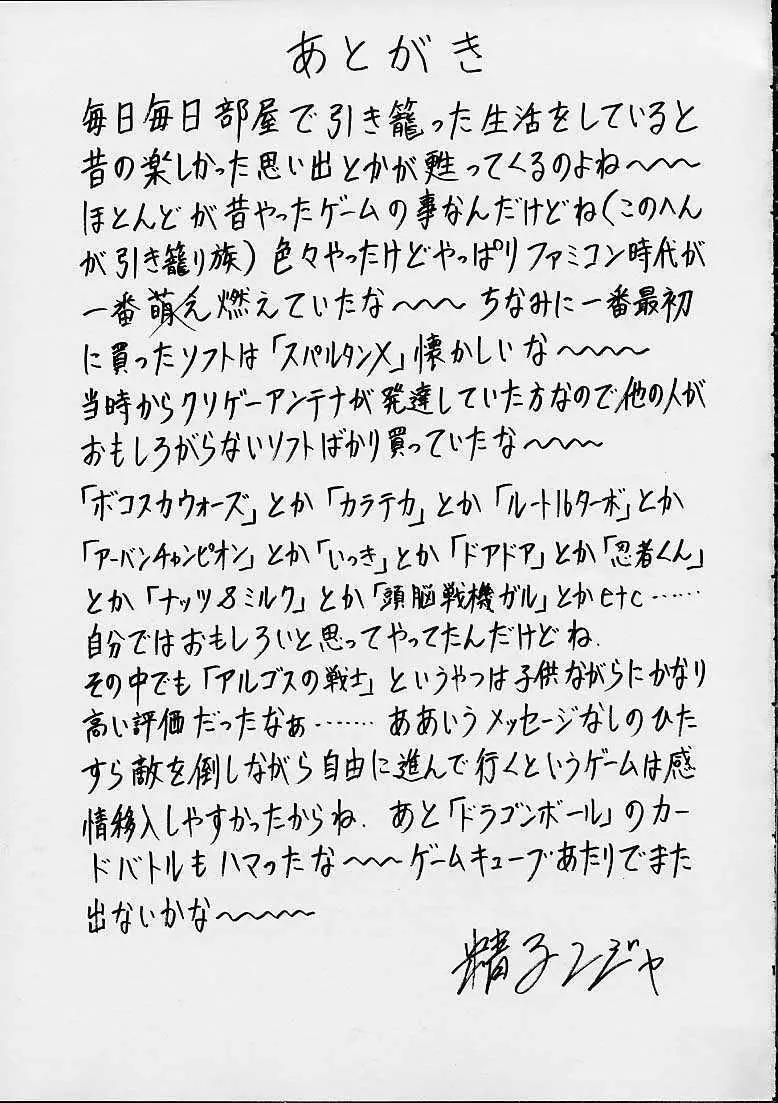 あとがき
毎日毎日部屋で引き籠った生活をしていると
昔の楽しかった思い出とかが甦ってくるのよね〜〜〜
ほとんどが昔やったゲームの事なんだけどね(このへん
が引き籠り族)色々やったけどやっぱりファミコン時代が
一番萌え燃えていたな〜〜〜ちなみに一番最初
に買ったソフトは「スパルタンX」懐かしいな〜〜〜〜
当時からクソゲーアンテナが発達していた方なので他の人が
おもしろがらないソフトばかり買っていたな〜〜〜
「ボコスカウォーズ」とか「カラテカ」とか「ルート16ターボ」とか
「アーバンチャンピオン」とか「いっき」とか「ドアドア」とか「忍者くん」
とか「ナッツ&ミルク」とか「頭脳戦機ガル」とかetc……
自分ではおもしろいと思ってやってたんだけどね.
その中でも「アルゴスの戦士」というやつは子供ながらにかなり
高い評価だったなぁ……. ああいうメッセージなしのひた
すら敵を倒しながら自由に進んで行くというゲームは感
情移入しやすかったからね. あと「ドラゴンボール」のカー
ドバトルもハマったな〜〜〜ゲームキューブあたりでまた
出ないかな〜〜〜〜
精子ンジャ